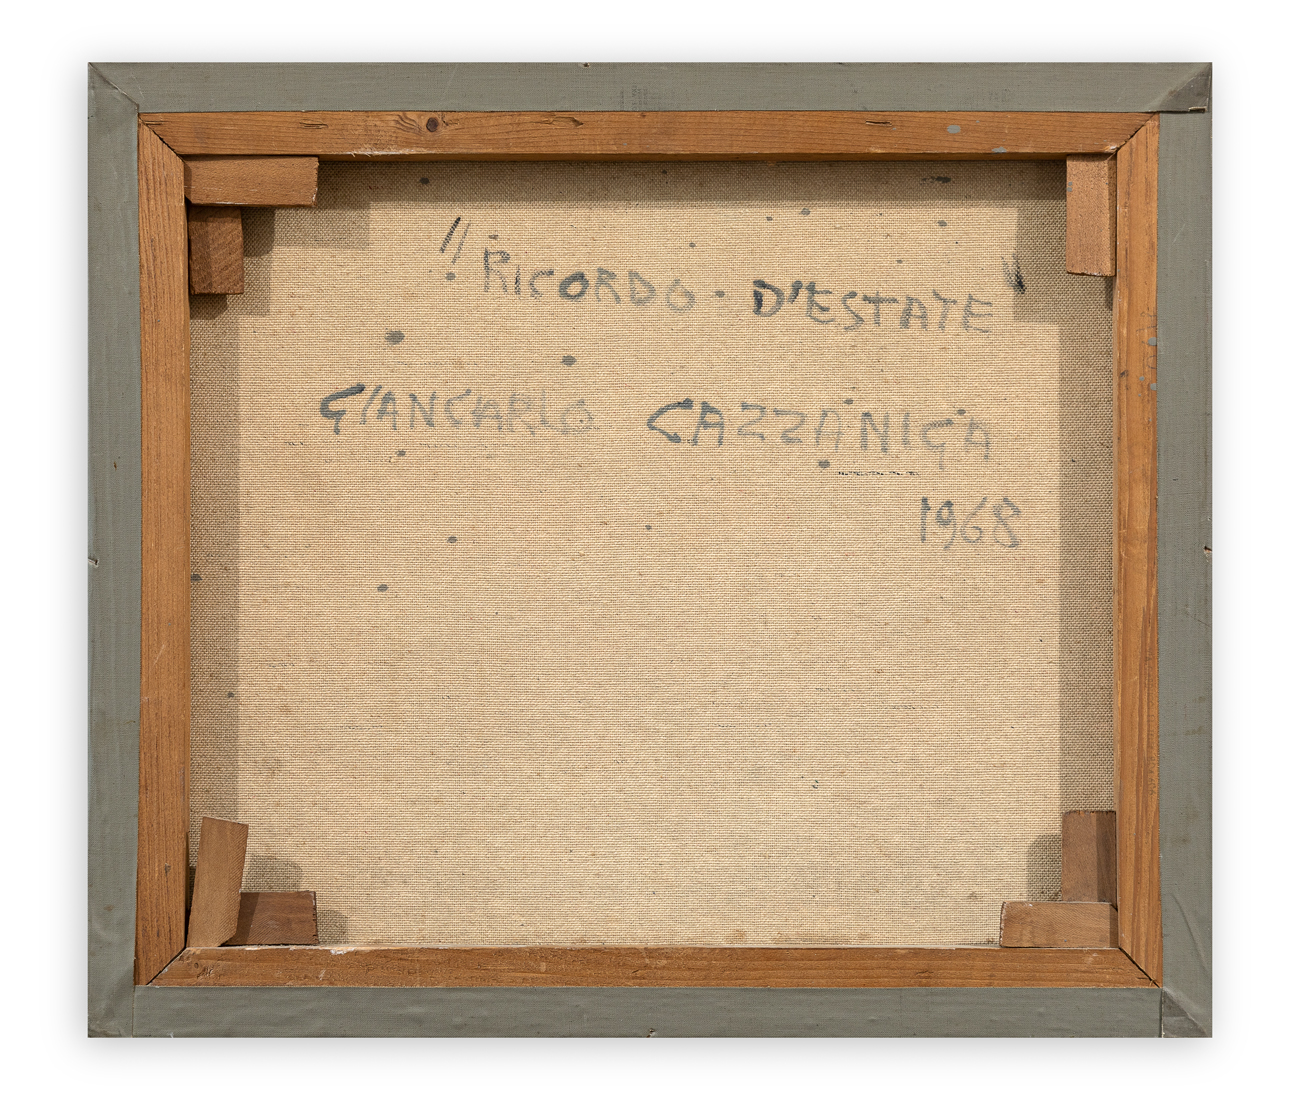 "RICORDO D'ESTATE"
GIANCARLO CAZZANIGA
1968